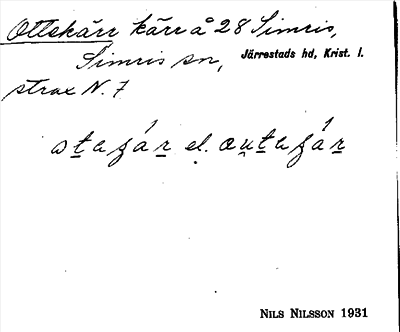 Ottskärr kärr å 28 Simris,
Simris sn, Järrestads hd, Krist. l.
strax N. 7
el.
NILS NILSSON 1931